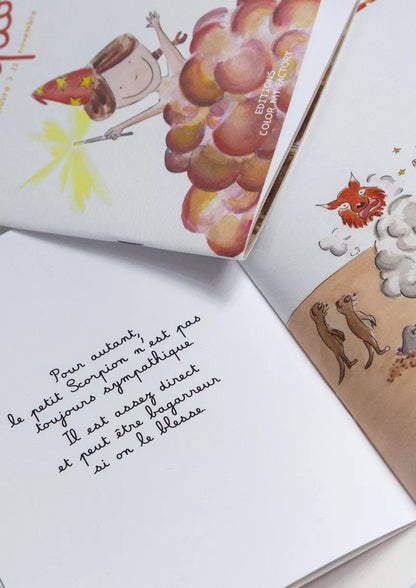 EDITIONS
COLOR MY FACTORY
Pour autant,
le petit Scorpion n'est pas
toujours sympathique
Il est assez direct
et peut être bagarreur
si on le blesse